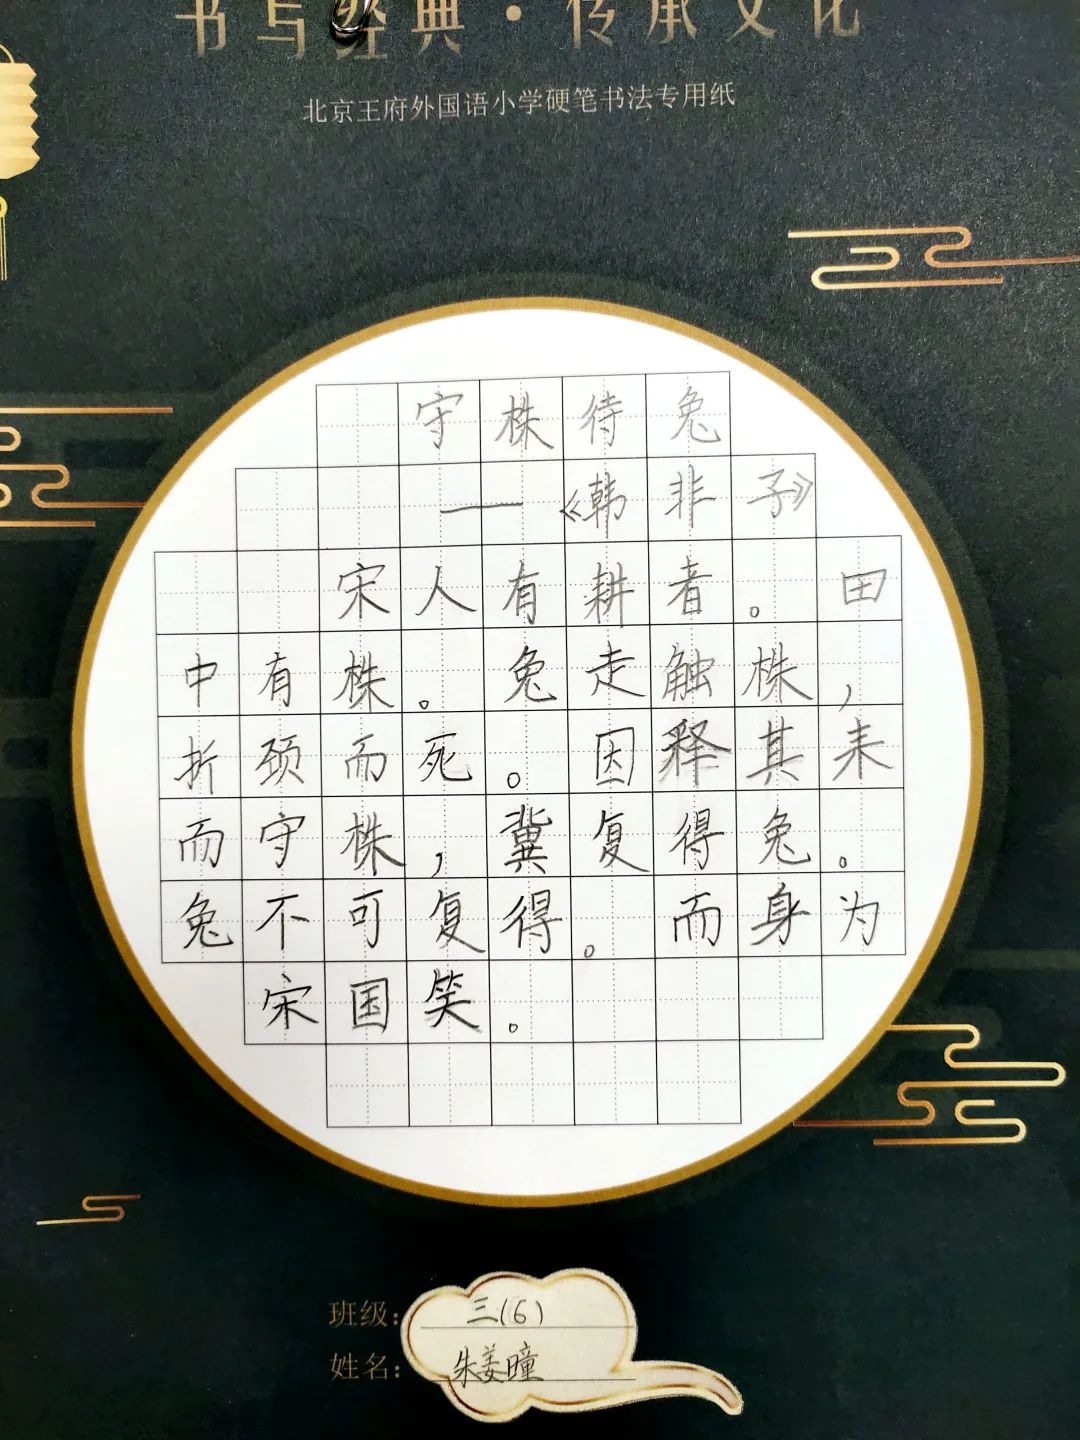 书写经典·传承文化
北京王府外国语小学硬笔书法专用纸
守株待兔
——《韩非子》
宋人有耕者。田
中有株。兔走触株，
折颈而死。因释其耒
而守株，冀复得兔。
兔不可复得。而身为
宋国笑。
班级：三(6)
姓名：朱姜曈